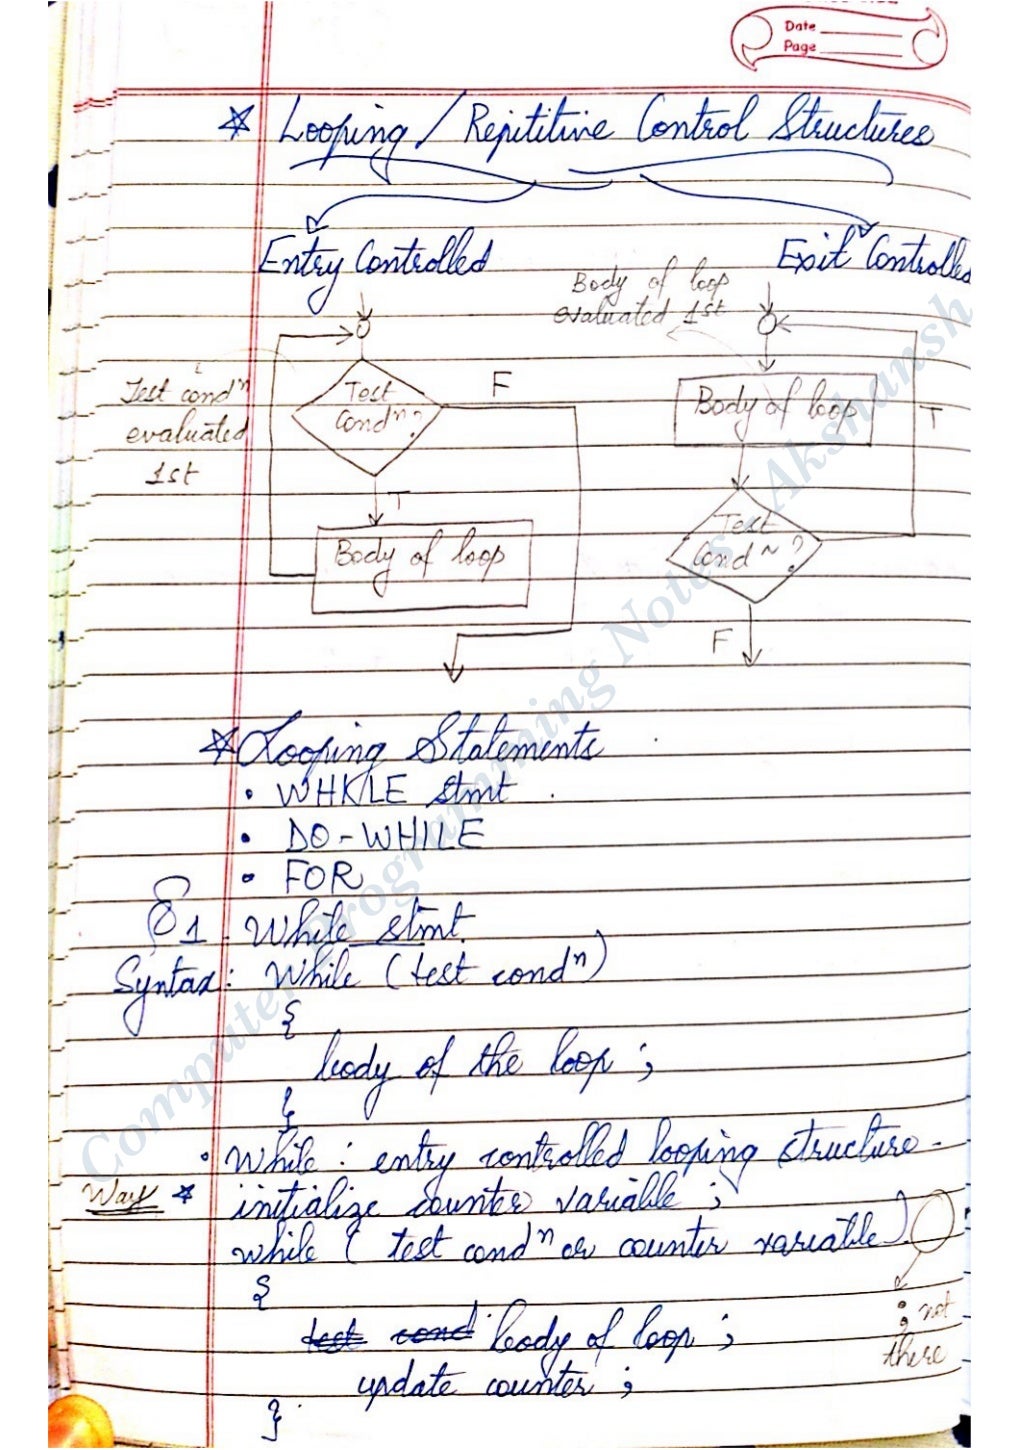 Date
Page
* Looping / Repititive Control Structures
Entry Controlled
Exit Controlled
Body of loop
evaluated 1st
Test condⁿ
evaluated
1st
Test
Condⁿ?
F
T
Body of loop
Body of loop
T
Test
Cond~?
F
* Looping Statements
• WHILE stmt
• DO-WHILE
• FOR
1. While stmt.
Syntax: While (test condⁿ)
{
body of the loop ;
}
• While : entry controlled looping structure.
Way * initialize counter variable ;
while ( test condⁿ or counter variable)
{
; not
there
test cond body of loop ;
update counter ;
}
Computer Programming Notes - Akshansh